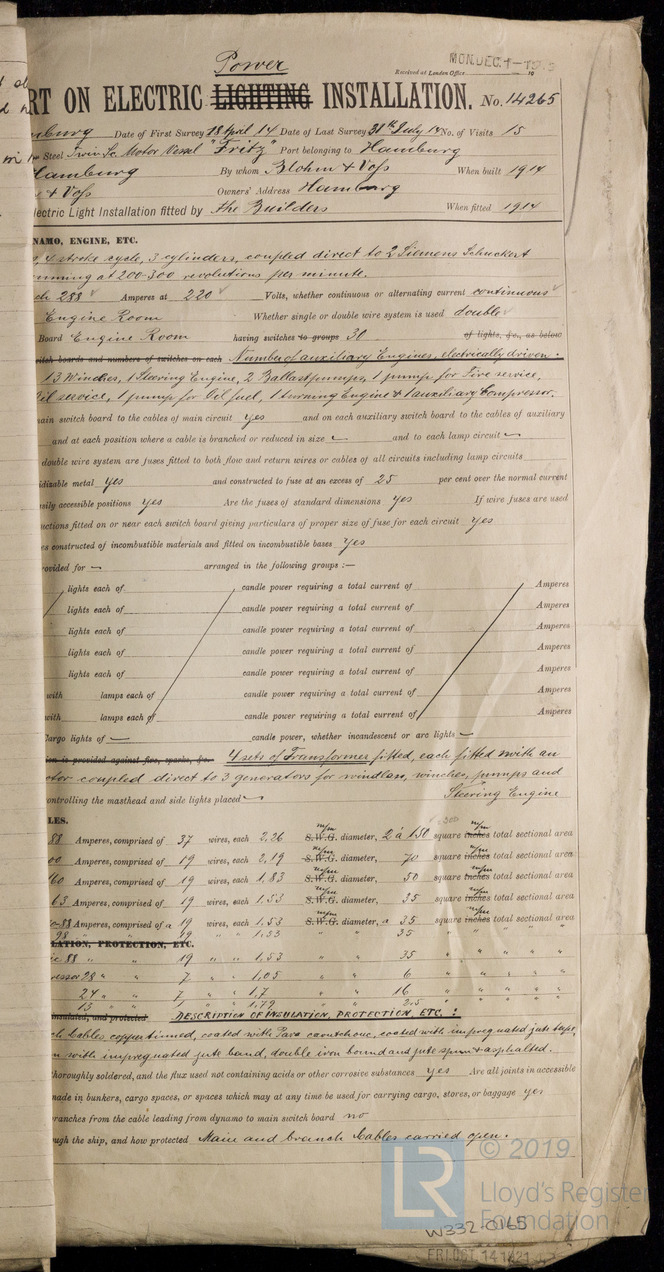 Power
MON. DEC. 1-19
Received at London Office 19
RT ON ELECTRIC LIGHTING INSTALLATION. No. 14265
mburg Date of First Survey 18 April 14 Date of Last Survey 31th July 14 No. of Visits 15
Steel Twin Sc. Motor Vessel "Fritz" Port belonging to Hamburg
Hamburg By whom Blohm & Voss When built 1914
& Voss Owners' Address Hamburg
lectric Light Installation fitted by the Builders When fitted 1914
NAMO, ENGINE, ETC.
4 stroke cycle, 3 cylinders, coupled direct to 2 Siemens Schuckert
running at 200-300 revolutions per minute.
ch 288 Amperes at 220 Volts, whether continuous or alternating current continuous
Engine Room Whether single or double wire system is used double
Board Engine Room having switches to groups 30 of lights, &c., as below
itch boards and numbers of switches on each Number of auxiliary Engines, electrically driven:
13 Winches, 1 Steering Engine, 2 Ballast pumps, 1 pump for Fire service,
Oil service, 1 pump for Oil fuel, 1 turning Engine & 1 auxiliary Compressor.
ain switch board to the cables of main circuit yes and on each auxiliary switch board to the cables of auxiliary
and at each position where a cable is branched or reduced in size - and to each lamp circuit -
double wire system are fuses fitted to both flow and return wires or cables of all circuits including lamp circuits
idizable metal yes and constructed to fuse at an excess of 25 per cent over the normal current
sily accessible positions yes Are the fuses of standard dimensions yes If wire fuses are used
uctions fitted on or near each switch board giving particulars of proper size of fuse for each circuit yes
es constructed of incombustible materials and fitted on incombustible bases yes
rovided for - arranged in the following groups :-
lights each of candle power requiring a total current of Amperes
lights each of candle power requiring a total current of Amperes
lights each of candle power requiring a total current of Amperes
lights each of candle power requiring a total current of Amperes
lights each of candle power requiring a total current of Amperes
with lamps each of candle power requiring a total current of Amperes
with lamps each of candle power requiring a total current of Amperes
Cargo lights of - candle power, whether incandescent or arc lights -
ion is provided against fire, sparks, &c. 4 sets of Transformer fitted, each fitted with an
otor coupled direct to 3 generators for windlass, winches, pumps and
ontrolling the masthead and side lights placed - Steering Engine
LES.
88 Amperes, comprised of 37 wires, each 2,26 S.W.G. m/m diameter, 2 à 150 square inches m/m total sectional area
00 Amperes, comprised of 19 wires, each 2,19 S.W.G. m/m diameter, 70 square inches m/m total sectional area
60 Amperes, comprised of 19 wires, each 1,83 S.W.G. m/m diameter, 50 square inches m/m total sectional area
63 Amperes, comprised of 19 wires, each 1.53 S.W.G. m/m diameter, 35 square inches m/m total sectional area
88 Amperes, comprised of a 19 wires, each 1,53 S.W.G. m/m diameter, a 35 square inches m/m total sectional area
98 " " 19 " " 1,53 " " 35 " " " "
LATION, PROTECTION, ETC.
88 " 19 " " 1,53 " " 35 " " " "
essor 28 " " 7 " " 1,05 " " 6 " " " "
24 " " 7 " " 1,7 " " 16 " " " "
13 " " 1 " " 1,79 " " 2.5 " " " "
insulated, and protected DESCRIPTION OF INSULATION, PROTECTION ETC.:
ch Cables copper tinned, coated with Para caoutchouc, coated with impregnated jute tape,
n with impregnated jute band, double iron bound and jute spun & asphalted.
horoughly soldered, and the flux used not containing acids or other corrosive substances yes Are all joints in accessible
made in bunkers, cargo spaces, or spaces which may at any time be used for carrying cargo, stores, or baggage yes
ranches from the cable leading from dynamo to main switch board no
ugh the ship, and how protected Main and branch Cables carried open.
LR © 2019
Lloyd's Register
Foundation
W332-0165
FRI. OCT. 14 1921